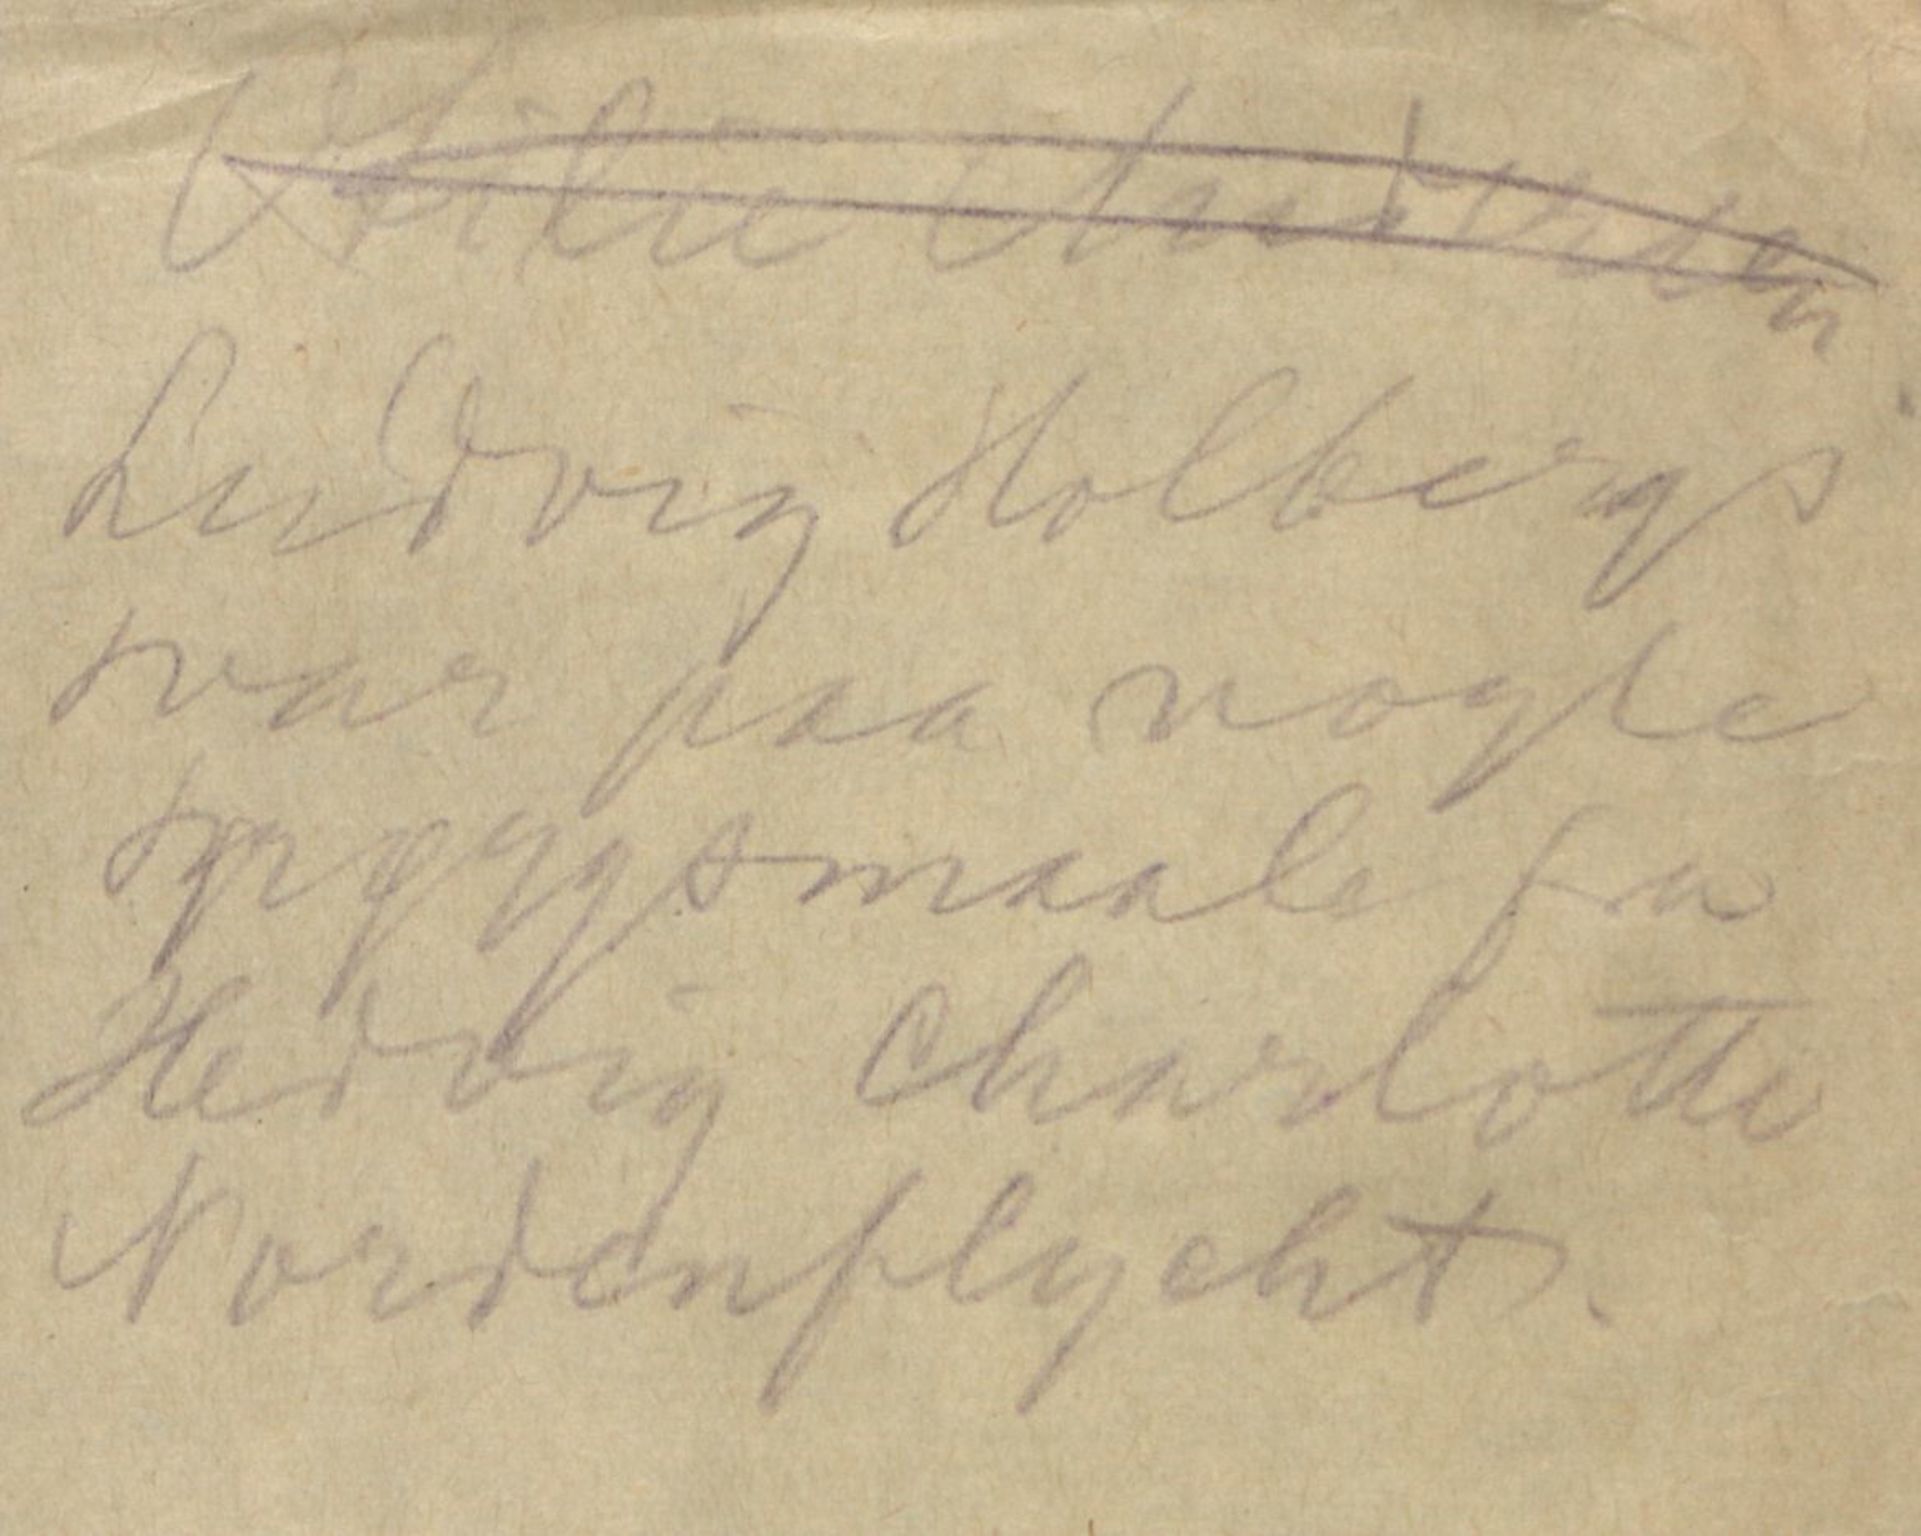 Ludvig Holbergs
svar paa nogle
spørgsmaale fra
Hedvig Charlotte
Nordenflycht.